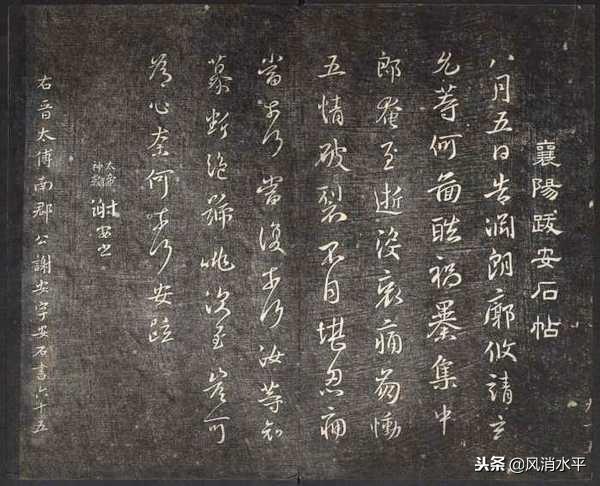 襄陽跋安石帖
八月五日告淵朗廓攸靖玄
允等何圖酷禍暴集中
郎奄至逝没哀痛崩慟
五情破裂不自堪忍痛
當奈何當復奈何汝等哀
慕斷絶號咷深至豈可
爲心奈何奈何安疏
謝安書
右晋太傅南郡公謝安字安石書六十五
头条 @风消水平